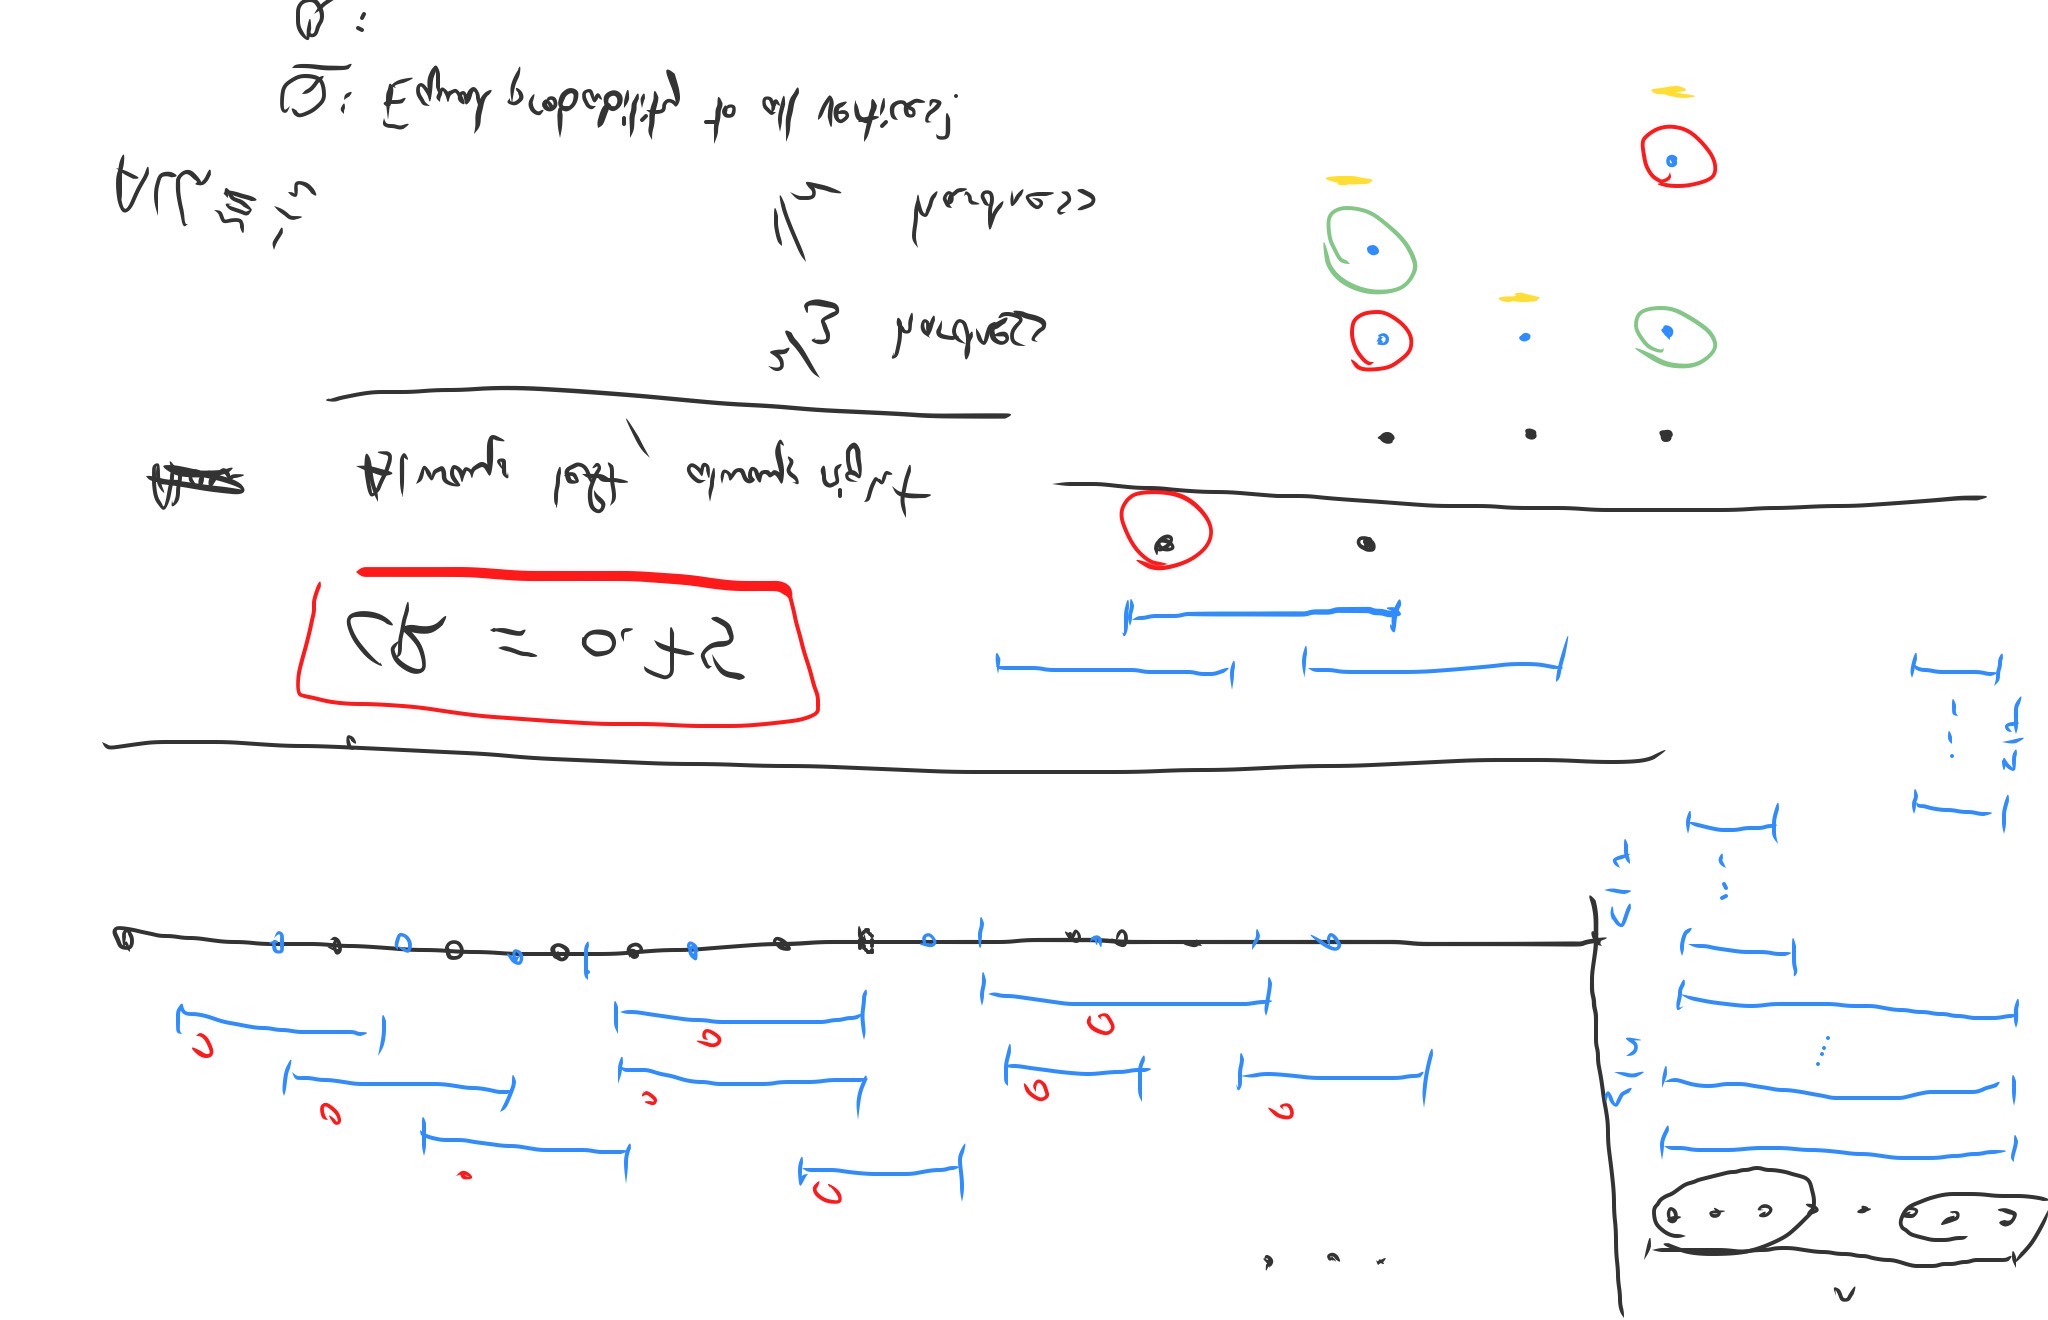 n
n/2
n/4
n/4
CR = 0.75
Always left, always right
2/3 hardness
1/2 hardness
ALG ≅ 1/2
Q: Equal probability to all vertices?
Q: